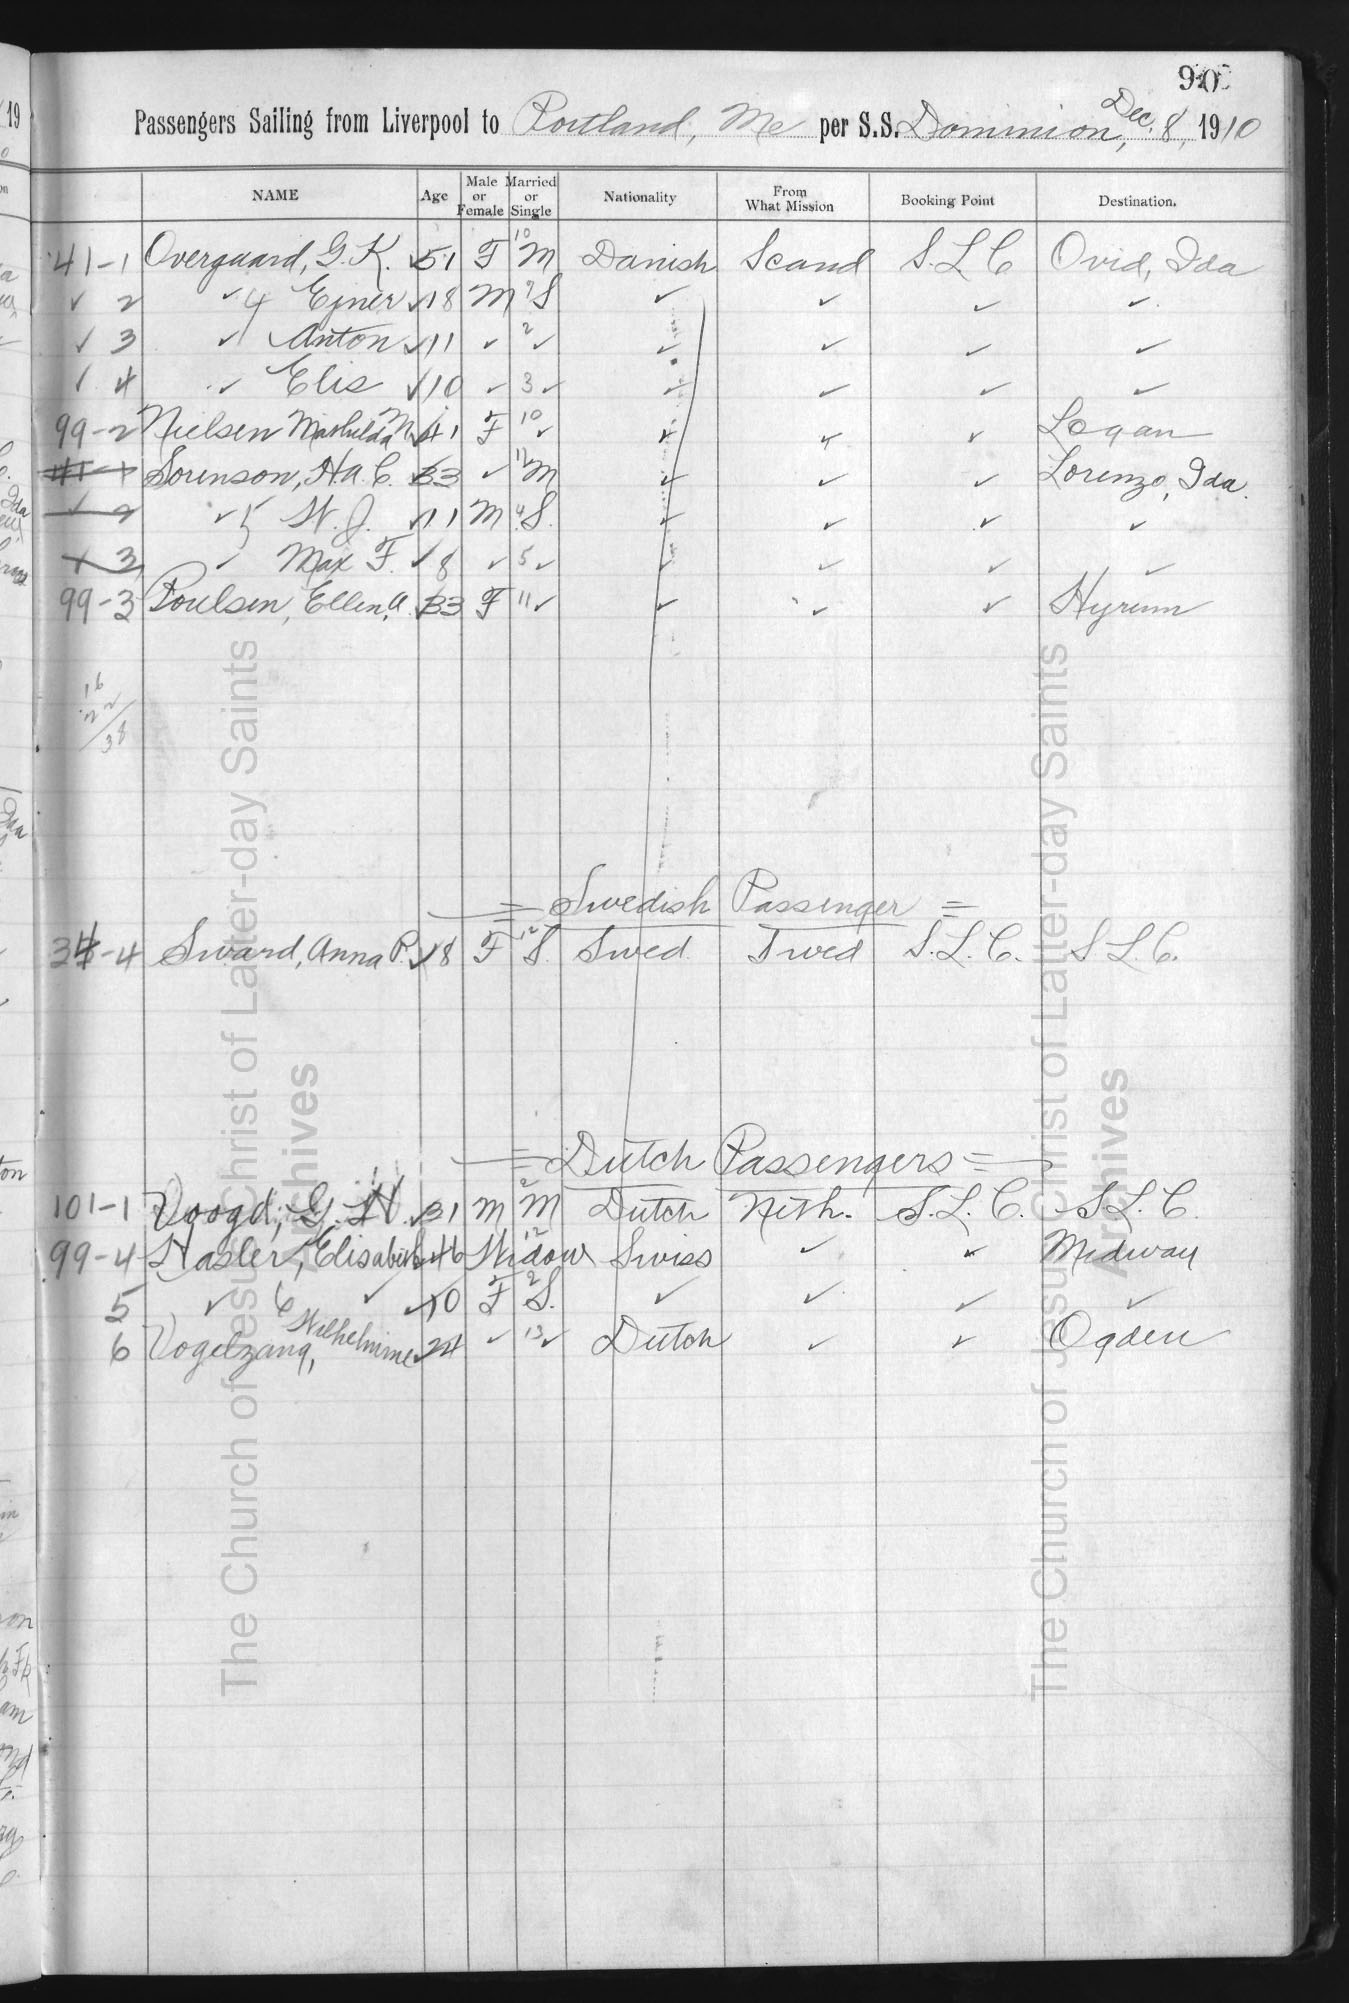 90
Passengers Sailing from Liverpool to Portland, Me per S.S. Dominion, Dec. 8, 1910
NAME Age Male or Female Married or Single Nationality From What Mission Booking Point Destination.
41-1 Overgaard, G. K. ✓51 F 10 M Danish Scand S.L.C Ovid, Ida
✓ 2 ✓ 4 Ejner ✓18 M 9 S ✓ ✓ ✓ ✓
✓ 3 ✓ Anton ✓11 ✓ 2 ✓ ✓ ✓ ✓ ✓
✓ 4 ✓ Elis ✓10 ✓ 3 ✓ ✓ ✓ ✓ ✓
99-2 Nielsen Mathilda M. ✓41 F 10 ✓ ✓ ✓ ✓ Logan
41-1 Sorenson, H.a.C. ✓33 ✓ 12 M ✓ ✓ ✓ Lorenzo, Ida.
✓ 2 ✓ 5 W. J. ✓11 M 4 S. ✓ ✓ ✓ ✓
✓ 3 ✓ Max F. ✓8 ✓ 5 ✓ ✓ ✓ ✓ ✓
99-3 Poulsen, Ellen, a. ✓33 F 11 ✓ ✓ ✓ ✓ Hyrum
16
22
38
= Swedish Passenger =
34-4 Sward, Anna P. ✓18 F 12 S. Swed. Swed S.L.C. S.L.C.
= Dutch Passengers =
101-1 Voogd, G. H. ✓31 M 2 M Dutch Neth. S.L.C. S.L.C.
99-4 Hasler, Elisabeth ✓46 Widow 12 Swiss ✓ ✓ Midway
5 ✓ 6 ✓ ✓10 F 2 S. ✓ ✓ ✓ ✓
6 Vogelzang, Wilhelmine ✓24 ✓ 13 ✓ Dutch ✓ ✓ Ogden
The Church of Jesus Christ of Latter-day Saints
Archives
The Church of Jesus Christ of Latter-day Saints
Archives